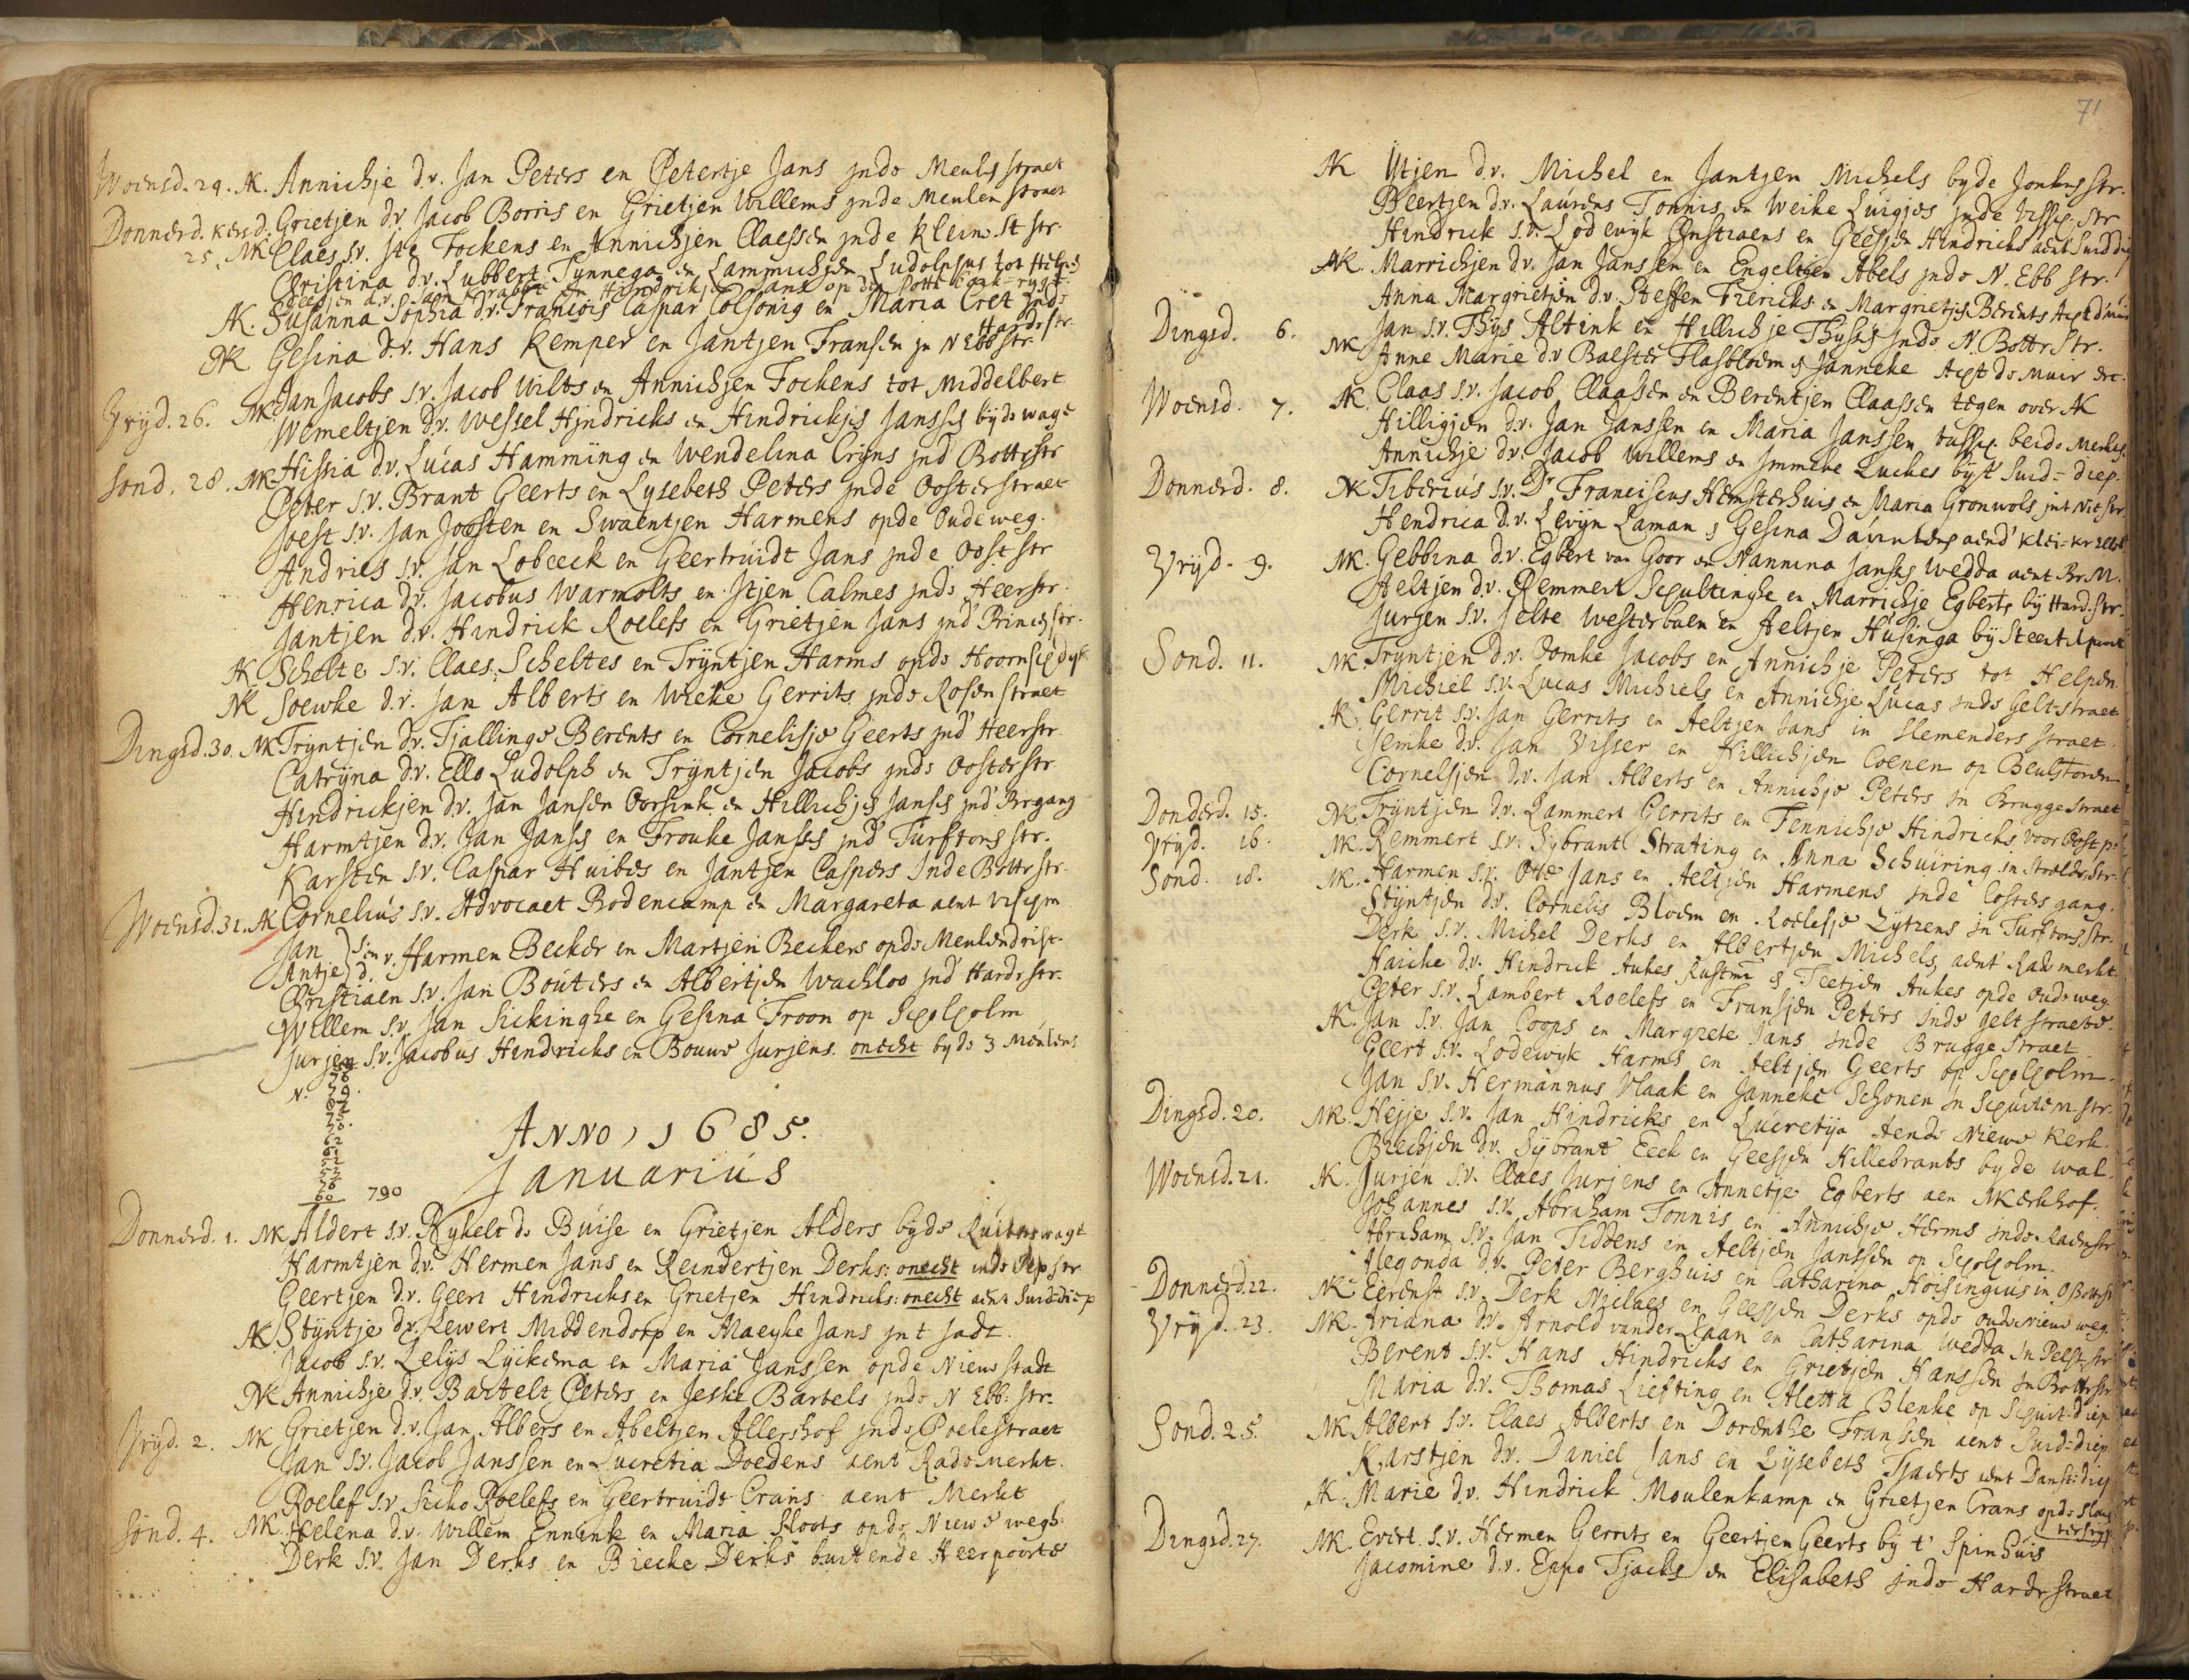 Woensd. 24. AK. Annichje d.v. Jan Peters en Petertje Jans jnde Meulestraet
Donnerd. kersd. Grietjen d.v. Jacob Borris en Grietjen Willems jnde Meulen straet
25. NK Claes s.v. Fockens en Annichjen Claessen jnde klein
Christina d.v. Lubbert Tynnega en Lammichjen Ludolphus tot Helpe
AK. Susanna Sophia d.v. Francois Caspar Colsonig en Maria Cret jnde
Hardrstr.
NK Gesina d.v. Hans Kemper en Jantjen Fransen jn N Ebb str.
Vryd. 26. NK. Jan Jacobs s.v. Jacob Wilts en Annichjen Fockens tot Middelbert
Wemeltjen d.v. Wessel Hjndricks en Hindrickjes Jansses byde wage
Sond. 28. NK. Hissia d.v. Lucas Hamming en Wendelina Crijns jnd' Bottrstr
Peter s.v. Brant Geerts en Lysebeth Peters jnde Oosterstraet
Joest s.v. Jan Joosten en Swaentjen Harmens opde Oudeweg.
Andries s.v. Jan Lobeeck en Geertruidt Jans jnde Oost str
Henrica d.v. Jacobus Warmolts en Itjen Calmes jnde Heerstr.
Jantjen d.v. Hindrick Roelefs en Grietjen Jans jnd' Princestr.
AK Schelte s.v. Claes Scheltes en Trijntjen Harms opde Hoornschedyk
NK Soewke d.v. Jan Alberts en Wieke Gerrits jnde Rosen straet
Dingsd. 30. NK Trijntjen d.v. Tjallinge Berents en Cornelisje Geerts jnd' Heerstr
Catrijna d.v. Ello Ludolph en Trijntjen Jacobs jnde Oosterstr
Hindrickjen d.v. Jan Jansen Oorsink en Hillichjes Janses jnd' Brgang
Harmtjen d.v. Jan Janses en Frouke Jansses jnd' Turftorsstr.
Karsten s.v. Caspar Huibes en Jantjen Caspers jnde Bottrstr.
Woensd. 31. AK Cornelius s.v. Advocaet Rodencamp en Margareta aent
Jan } s. en
Antje } d. v. Harmen Becker en Martjen Beckers opde Meulendrist
Christiaen s.v. Jan Bouters en Albertjen Wachloo jnd' Hardrstr.
Willem s.v. Jan Sickinghe en Gesina Froon op Scholholm
Jurjen s.v. Jacobus Hindricks en Bouwe Jurjens onecht byde 3 Meulens
N.
790
ANNO, 1685.
Januarius
Donnerd. 1. NK Aldert s.v. Rykelt de Buise en Grietjen Alders byde Ruiterswagt
Harmtjen d.v. Hermen Jans en Reindertjen Derks: onecht inde Pepstr
Geertjen d.v. Geert Hindricks en Grietjen Hindricks: onecht aent Suid=diep
AK Stijntje d.v. Rewert Middendorp en Maeyke Jans jnt Jadt.
Jacob s.v. Lelijs Lijckema en Maria Janssen opde Nieuw stadt
NK Annichje d.v. Bartelt Peters en Jeske Bartels jnde N Ebb. str.
Vryd. 2. NK Grietjen d.v. Jan Albers en Abeltjen Allershof jnde Poelestraet
Jan s.v. Jacob Janssen en Lucretia Doedens aent Rademerkt.
Roelef s.v. Sicko Roelefs en Geertruidt Crans aent Merkt
Sond. 4. NK. Helena d.v. Willem Ennink en Maria Sloots opde Niewe wegh.
Derk s.v. Jan Derks en Biecke Derks buitende Heerpoorte
71
AK Itjen d.v. Michel en Jantjen Michels byde Jonkersstr.
Beertjen d.v. Laurens Tonnis en Weike Luigjes jnde Visscherstr
Hindrick s.v. Lodewyk Christiaens en Geesjen Hindricks aent Suiddiep
NK. Marrichjen d.v. Jan Janssen en Engeltjen Abels jnde N. Ebb str.
Anna Margrietjen d.v. Steffen Frericks en Margrietjes Berents Acht d' muir
Dingsd. 6. Jan s.v. Thijs Altink en Hillichje Thijsses jnde N. Bottrstr.
NK Anne Marie d.v. Balster Flasbloem & Janneke Acht de Muir etc.
Woensd. 7. AK. Claas s.v. Jacob Claassen en Berentjen Claassen tegen over AK
Hilligjen d.v. Jan Janssen en Maria Janssen tussche beide Merkt.
Annichje d.v. Jacob Willems en Jmmeke Luckes byt Suid=diep.
Donnerd. 8. NK Tiberius s.v. Dr Franciscus Hemsterhuis en Maria Gronwols
Hendrica d.v. Levijn Laman & Gesina
Vryd. 9. NK. Gebbina d.v. Egbert van Goor en Nannina Jansses Wedda aent Br.M.
Aeltjen d.v. Remmert Schultinghe en Marrichje Egberts by Hard.str.
Jurjen s.v. Jelte Westerbaen en Aeltjen Husinga by Steentilpoort
Sond. 11. NK. Trijntjen d.v. Oomke Jacobs en Annichje Peters tot Helpen
Michiel s.v. Lucas Michiels en Annichje Lucas jnde Geltstraet
AK. Gerrit s.v. Jan Gerrits en Aeltjen Jans in slemenders straet.
Jemke d.v. Jan Visser en Hillichjen Coenen op Beulstoren
Cornelsjen d.v. Jan Alberts en Annichje Peters jn Bruggestraet
Donderd. 15. NK. Trijntjen d.v. Lammert Gerrits en Fennichje Hindricks voor Oost p.
Vryd. 16. NK. Remmert s.v. Sijbrant Strating en Anna Schuiring in
Sond. 18. NK. Harmen s.v. Otto Jans en Aeltjen Harmens jnde Costers gang.
Stijntjen d.v. Cornelis Bloem en Roelesje Zijtzens jn Turftorsstr.
Derk s.v. Michel Derks en Albertjen Michels, aent Rademerkt
Haicke d.v. Hindrick Aukes & Teetjen Aukes opde Oudeweg
Peter s.v. Lambert Roelefs en Fransjen Peters jnde geltstraete
AK. Jan s.v. Jan Coops en Margrete Jans jnde Bruggestraet
Geert s.v. Lodewyk Harms en Aeltjen Geerts op Scholholm
Jan s.v. Hermannus Vlaak en Janneke Schonen jn Schuiten str.
Dingsd. 20. NK. Hejje s.v. Jan Hindricks en Lucretija Aende Niewe Kerk.
Biechjen d.v. Sijbrant Eeck en Geesjen Hillebrants byde wal.
Woensd. 21. AK. Jurjen s.v. Claes Jurjens en Annetje Egberts aen AKerkhof.
Johannes s.v. Abraham Tonnis en Annichje Herms jnde Raemstr
Abraham s.v. Jan Tiddens en Aeltjen Janssen op Scholholm.
Alegonda d.v. Peter Berghuis en Catharina Hoisingius in
Donnerd. 22. NK Eerenst s.v. Derk Niclaes en Geesjen Derks opde oude niewe weg.
Vryd. 23. NK. Ariana d.v. Arnold vander Laan en Catharina Wedda jn Pelsterstr
Berent s.v. Hans Hindricks en Grietjen Hanssen jn Bottrstr
Maria d.v. Thomas Liefting en Aletta Blenke op Schuit-diep
Sond. 25. NK Albert s.v. Claes Alberts en Dorenthe Fransen aent Suid=diep
Karstjen d.v. Daniel Jans en Lijsebeth Tjaerts aent
AK. Marie d.v. Hindrick Moulenkamp en Grietjen Crans opde
Dingsd. 27. NK. Evert s.v. Hermen Gerrits en Geertjen Geerts by t' Spinhuis
Jacomine d.v. Eppo Tjacks en Elisabeth jnde Hardrstraet